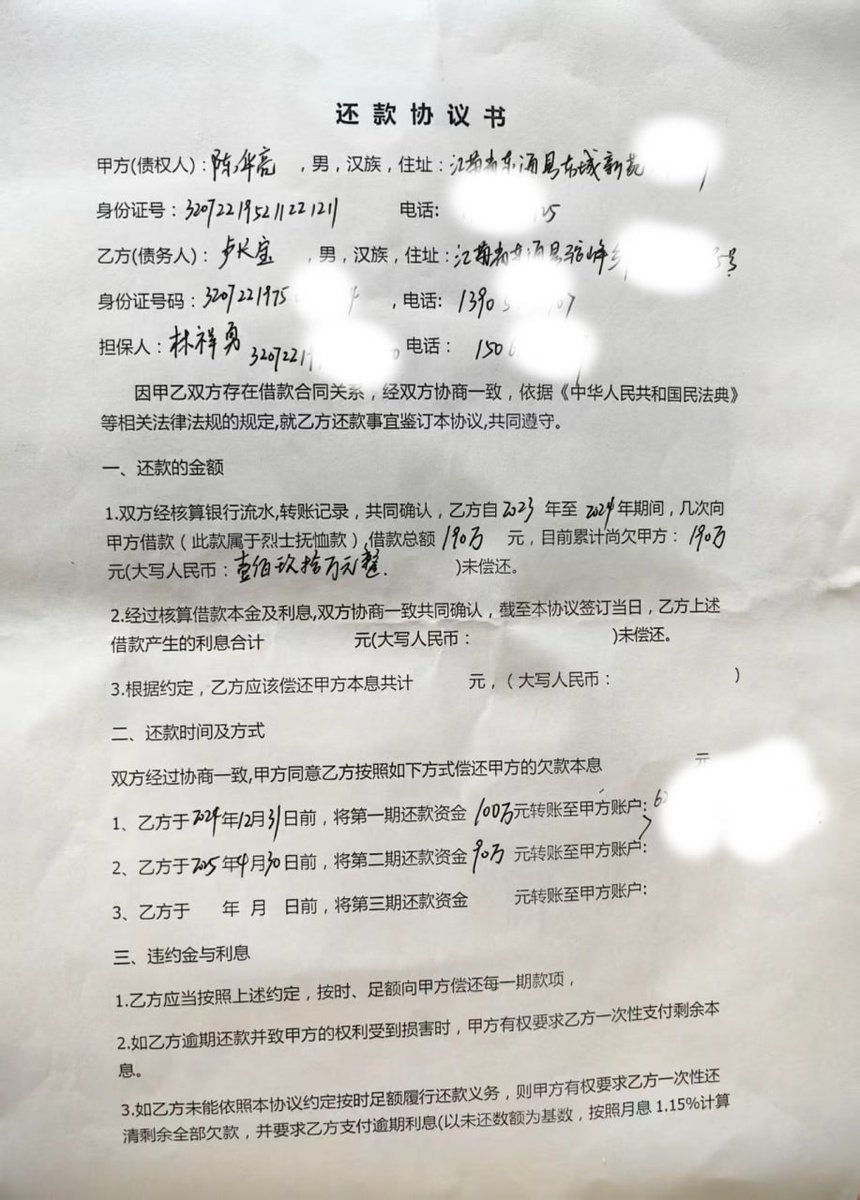 还款协议书
甲方(债权人)：陈华亮，男，汉族，住址：江苏省东海县东城新苑
身份证号：320722195211221211 电话: 25
乙方(债务人)：卢长宝，男，汉族，住址：江苏省东海县 峰 5号
身份证号码：3207221975 4，电话: 1390 07
担保人：林祥勇 32072219 0 电话： 150
因甲乙双方存在借款合同关系，经双方协商一致，依据《中华人民共和国民法典》
等相关法律法规的规定,就乙方还款事宜鉴订本协议,共同遵守。
一、还款的金额
1.双方经核算银行流水,转账记录，共同确认，乙方自2023年至2024年期间，几次向
甲方借款（此款属于烈士抚恤款）,借款总额190万元，目前累计尚欠甲方：190万
元(大写人民币：壹佰玖拾万元整.)未偿还。
2.经过核算借款本金及利息,双方协商一致共同确认，截至本协议签订当日，乙方上述
借款产生的利息合计 元(大写人民币： )未偿还。
3.根据约定，乙方应该偿还甲方本息共计 元，（大写人民币： ）
二、还款时间及方式
双方经过协商一致,甲方同意乙方按照如下方式偿还甲方的欠款本息 元
1、乙方于2024年12月31日前，将第一期还款资金100万元转账至甲方账户: 6
2、乙方于2025年4月30日前，将第二期还款资金90万元转账至甲方账户:
3、乙方于 年 月 日前，将第三期还款资金 元转账至甲方账户:
三、违约金与利息
1.乙方应当按照上述约定，按时、足额向甲方偿还每一期款项，
2.如乙方逾期还款并致甲方的权利受到损害时，甲方有权要求乙方一次性支付剩余本
息。
3.如乙方未能依照本协议约定按时足额履行还款义务，则甲方有权要求乙方一次性还
清剩余全部欠款，并要求乙方支付逾期利息(以未还数额为基数，按照月息1.15%计算